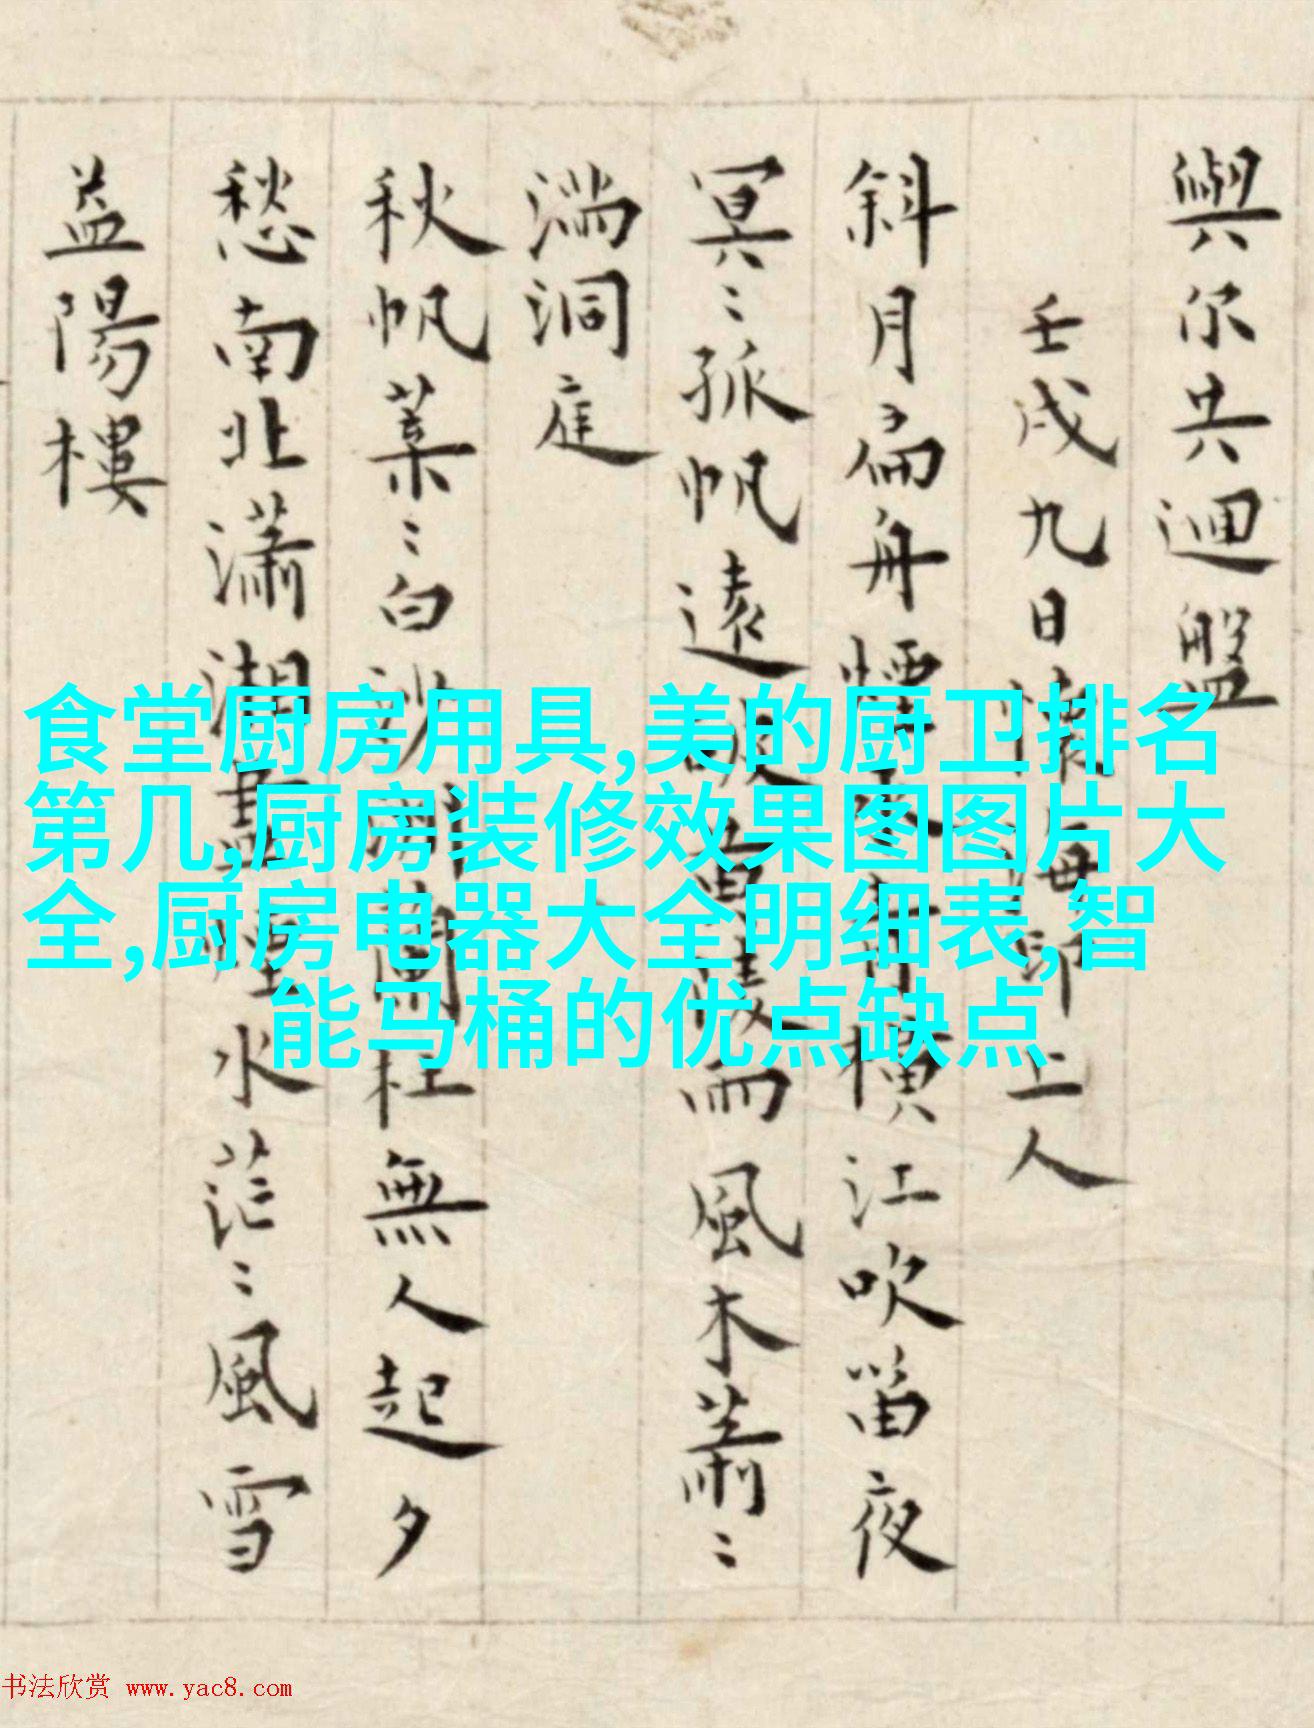 與尔共迴盤
壬戌九日懷海印上人
斜月扁舟煙橫江吹笛夜
冥〻孤帆遠陵雨風木蕭〻
滿洞庭
秋帆葉〻白沙蘭杜無人起夕
愁南北瀟湘水茫〻風雪
益陽樓
食堂厨房用具,美的厨卫排名
第几,厨房装修效果图图片大
全,厨房电器大全明细表,智
能马桶的优点缺点
书法欣赏 www.yac8.com